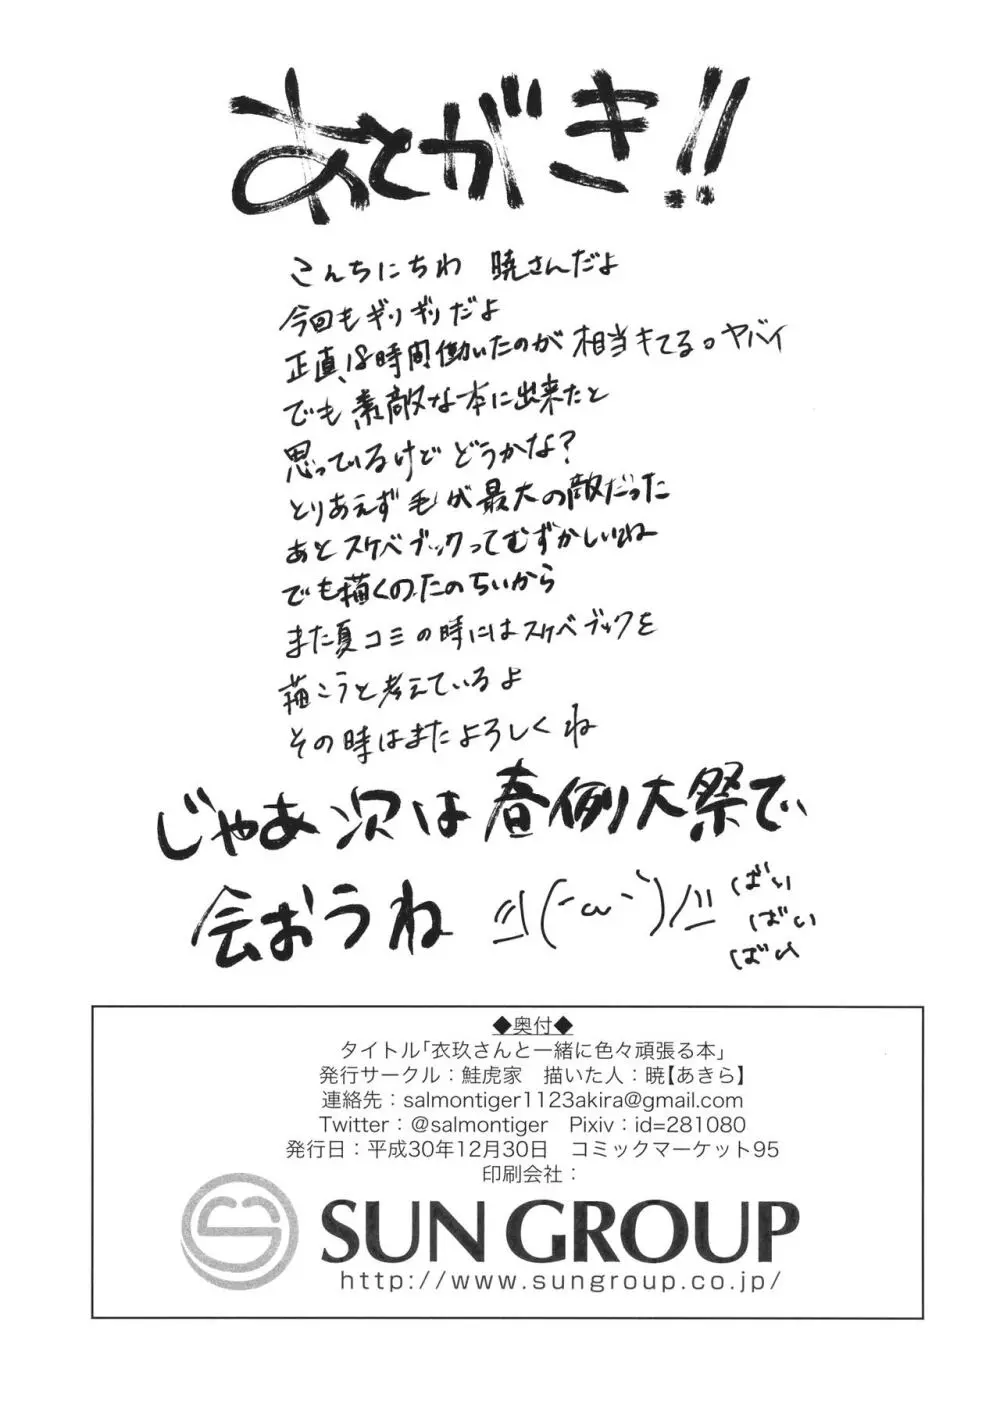 あとがき!!
こんちにちわ 暁さんだよ
今回もギリギリだよ
正直、18時間働いたのが相当キてる。ヤバイ
でも素敵な本に出来たと
思っているけどどうかな?
とりあえず毛が最大の敵だった
あとスケベブックってむずかしいね
でも描くのたのちいから
また夏コミの時にはスケベブックを
描こうと考えているよ
その時はまたよろしくね
じゃあ次は春例大祭で
会おうね ((´ω`)ノ)) ばい
ばい
ばい
◆奥付◆
タイトル「衣玖さんと一緒に色々頑張る本」
発行サークル:鮭虎家 描いた人:暁【あきら】
連絡先:salmontiger1123akira@gmail.com
Twitter:@salmontiger Pixiv:id=281080
発行日:平成30年12月30日 コミックマーケット95
印刷会社:
SUN GROUP
http://www.sungroup.co.jp/